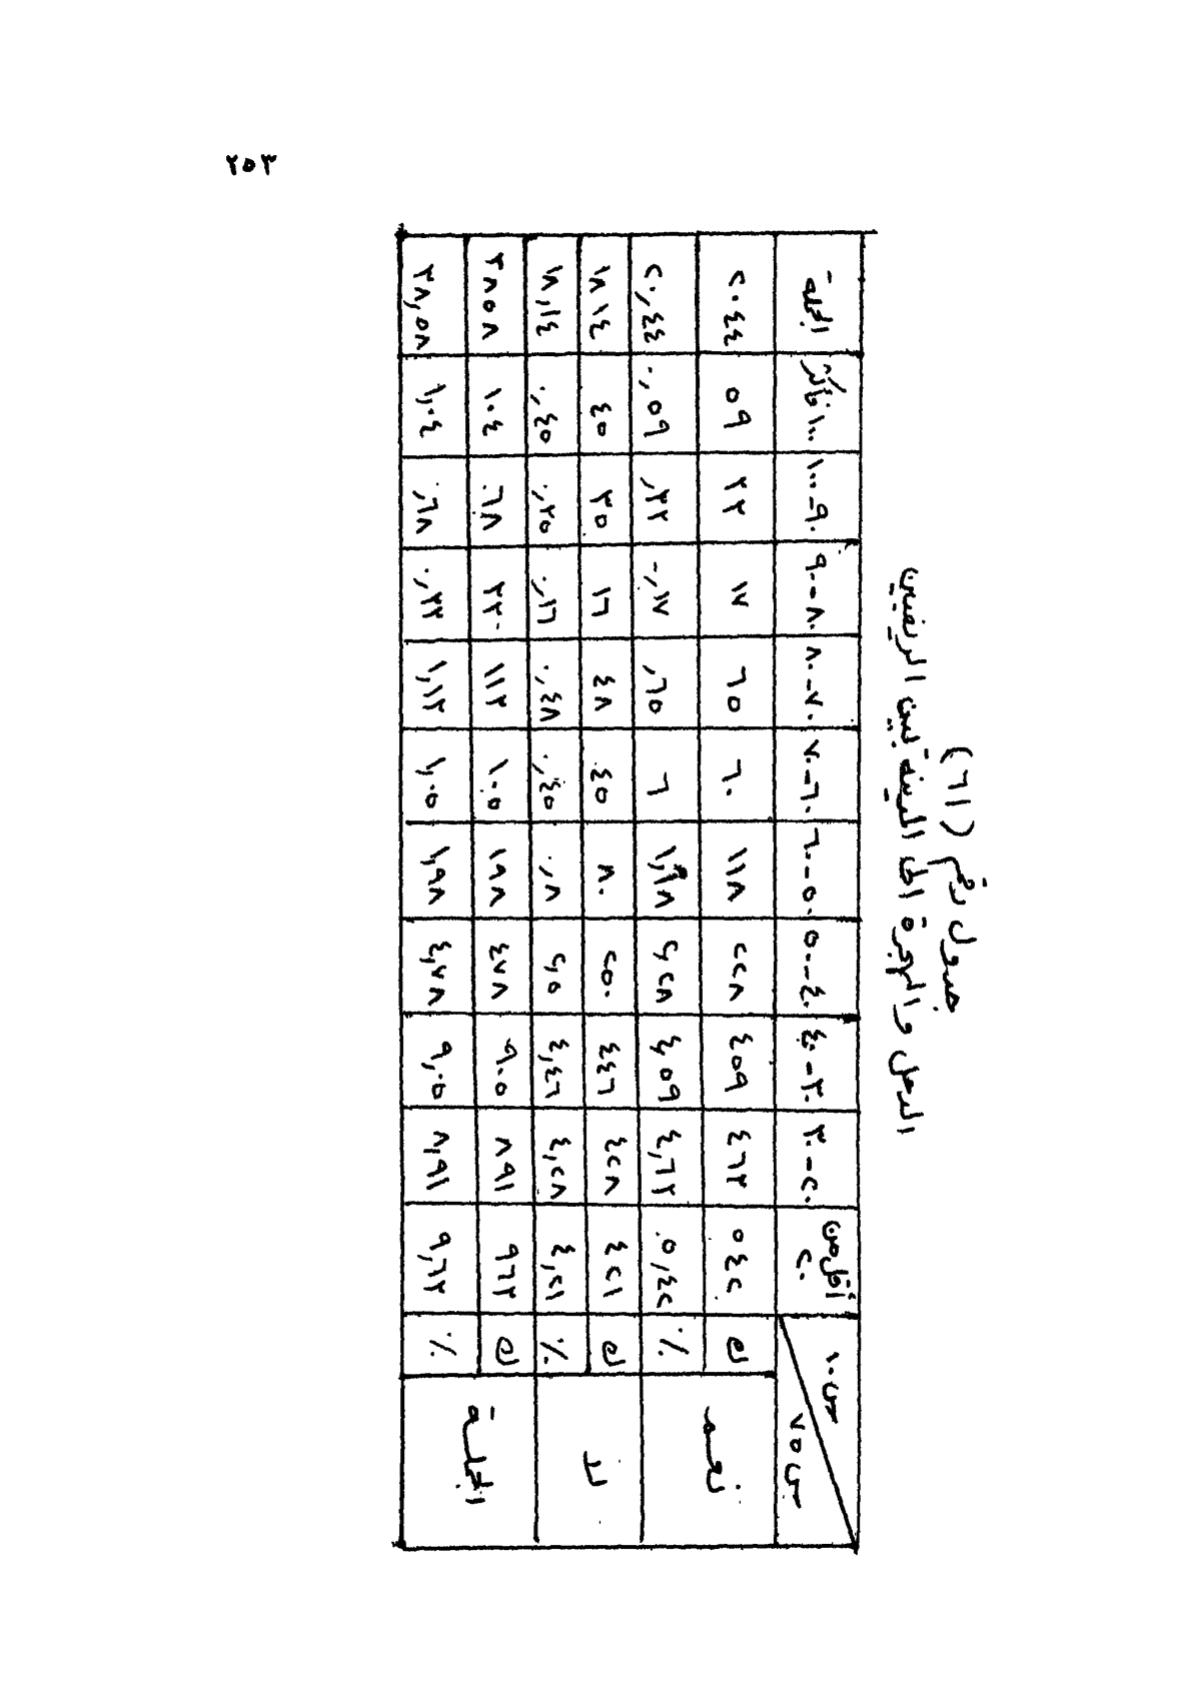 ٢٥٣
جدول رقم (٦١)
الدخل والهجرة الى المدينة بين الريفيين
س١٠ س٧٥ أقل من ٢٠ ٢٠-٣٠ ٣٠-٤٠ ٤٠-٥٠ ٥٠-٦٠ ٦٠-٧٠ ٧٠-٨٠ ٨٠-٩٠ ٩٠-١٠٠ ١٠٠ فأكثر الجملة
نعم ك ٥٤٢ ٤٦٣ ٤٥٩ ٢٢٨ ١١٨ ٦٠ ٦٥ ١٧ ٣٣ ٥٩ ٢٠٤٤
٪ ٥,٤٢ ٤,٦٣ ٤,٥٩ ٢,٢٨ ١,١٨ ٦ ,٦٥ ٠,١٧ ,٣٣ ٠,٥٩ ٢٠,٤٤
لا ك ٤٢١ ٤٢٨ ٤٤٦ ٢٥٠ ٨٠ ٤٥ ٤٨ ١٦ ٣٥ ٤٥ ١٨١٤
٪ ٤,٢١ ٤,٢٨ ٤,٤٦ ٢,٥ ٠,٨ ٠,٤٥ ٠,٤٨ ٠,١٦ ٠,٣٥ ٠,٤٥ ١٨,١٤
الجملة ك ٩٦٣ ٨٩١ ٩٠٥ ٤٧٨ ١٩٨ ١٠٥ ١١٣ ٣٣ ٦٨ ١٠٤ ٣٨٥٨
٪ ٩,٦٣ ٨,٩١ ٩,٠٥ ٤,٧٨ ١,٩٨ ١,٠٥ ١,١٣ ٠,٣٣ ,٦٨ ١,٠٤ ٣٨,٥٨